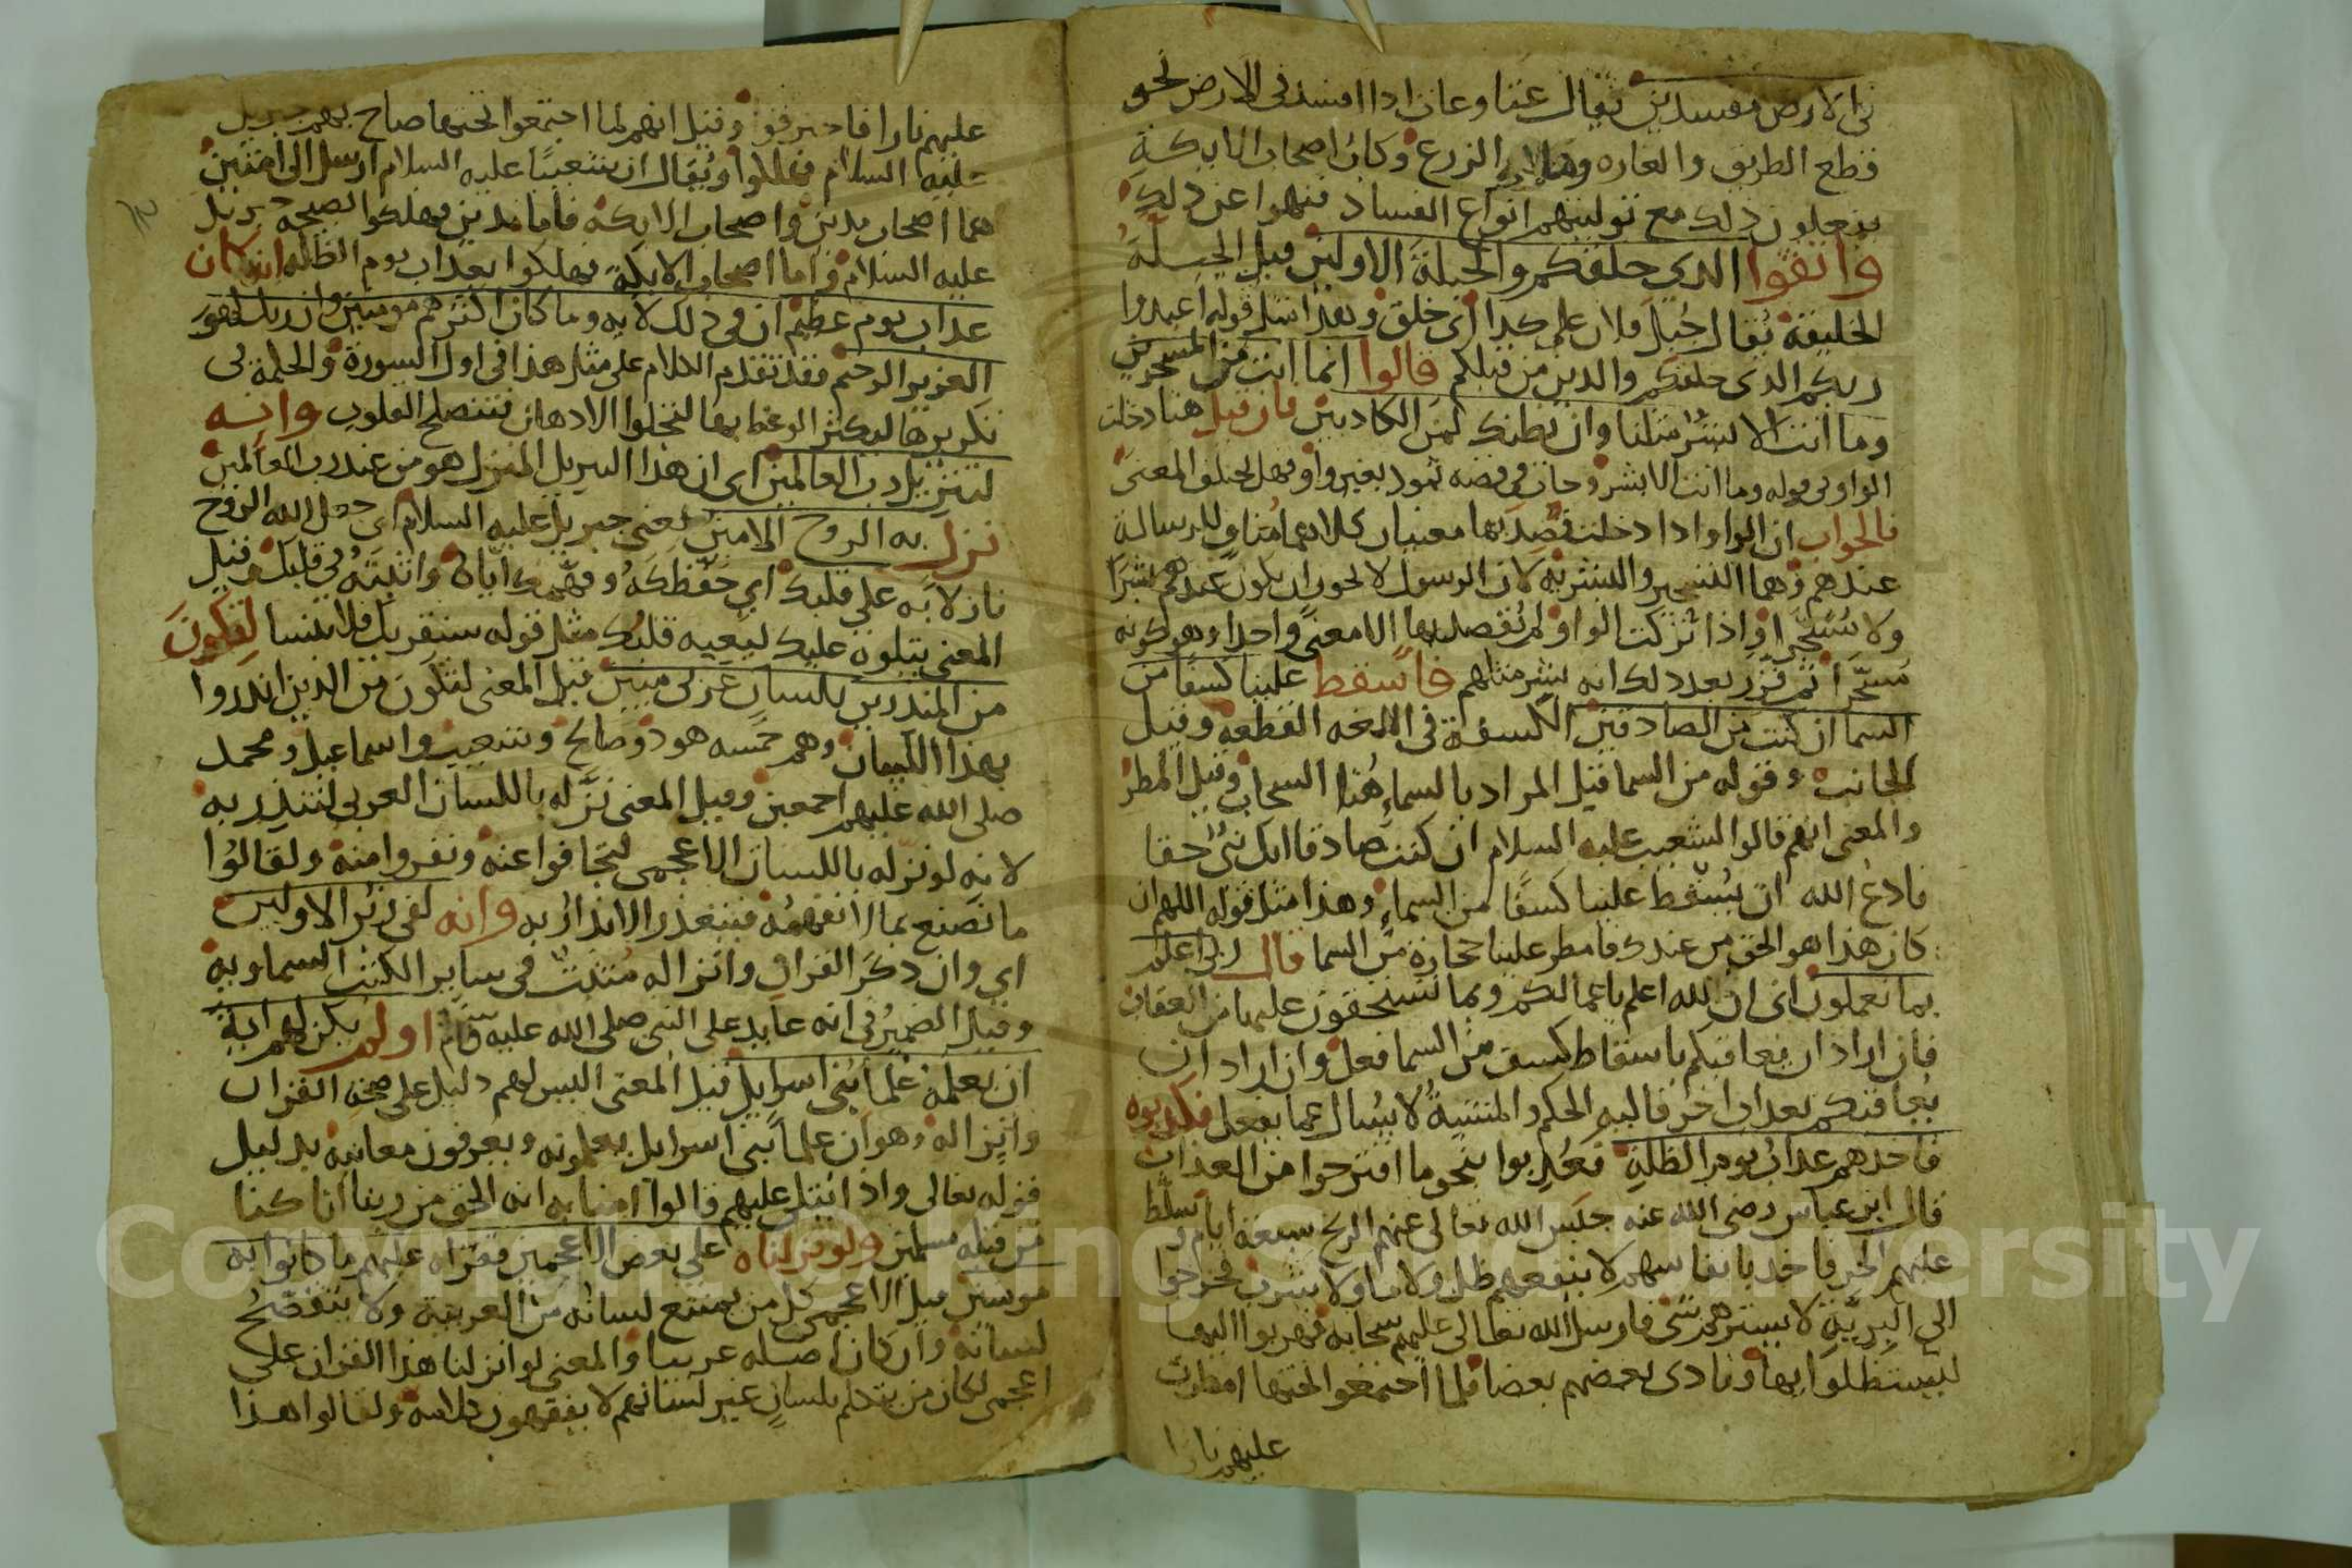 في الارض مفسدين يقال عثا وعاث اذا افسد في الارض نحو
قطع الطريق والغاره وهلاك الزرع وكان اصحاب الايكة
يفعلون ذلك مع توليتهم انواع الفساد فنهوا عن ذلك
واتقوا الذي خلقكم والجبلة الاولين قيل الجبلة
الخليقة يقال جبل فلان على كذا اى خلق وهذا مثل قوله اعبدوا
ربكم الذي خلقكم والذين من قبلكم قالوا انما انت من المسحرين
وما انت الا بشر مثلنا وان نظنك لمن الكاذبين فان قيل هنا دخلت
الواو في قوله وما انت الا بشر وجات في قصة ثمود بغير واو فهل يختلف المعنى
فالجواب ان الواو اذا دخلت قصد بها معنيان كلاهما مناف للرسالة
عندهم وهما التسحير والبشرية لان الرسول لا يجوز ان يكون عندهم بشرا
ولا مسحرا واذا تركت الواو لم يقصد بها الا معنى واحدا وهو كونه
مسحرا ثم قرر بعد ذلك انه بشر مثلهم فاسقط علينا كسفا من
السما ان كنت من الصادقين الكسفة في اللغه القطعه وقيل
الجانب وقوله من السما قيل المراد بالسماء هنا السحاب وقيل المطر
والمعنى انهم قالوا لشعيب عليه السلام ان كنت صادقا انك نبي حقا
فادع الله ان يسقط علينا كسفا من السماء وهذا مثل قوله اللهم ان
كان هذا هو الحق من عندك فامطر علينا حجارة من السما قال ربي اعلم
بما تعملون اى ان الله اعلم باعمالكم وبما تستحقون عليها من العقاب
فان اراد ان يعاقبكم باسقاط كسف من السما فعل وان اراد ان
يعاقبكم بعذاب اخر فاليه الحكم والمشية لا يسال عما يفعل فكذبوه
فاخذهم عذاب يوم الظلة فعذبوا بنحو ما اقترحوا من العذاب
قال ابن عباس رضى الله عنه حبس الله تعالى عنهم الريح سبعة ايام وسلط
عليهم الحر فاخذ بانفاسهم لا ينفعهم ظل ولا ما ولا سرب فخرجوا
الى البرية لا يسترهم شى فارسل الله تعالى عليهم سحابة فهربوا اليها
ليستظلوا بها ونادى بعضهم بعضا فلما اجتمعوا تحتها امطرت
عليهم نارا
عليهم نارا فاحترقوا وقيل انهم لما اجتمعوا تحتها صاح بهم جبريل
عليه السلام فهلكوا ويقال ان شعيبا عليه السلام ارسل الى امتين
هما اصحاب مدين واصحاب الايكة فاما مدين فهلكوا بصيحة جبريل
عليه السلام واما اصحاب الايكة فهلكوا بعذاب يوم الظلة انه كان
عذاب يوم عظيم ان في ذلك لاية وما كان اكثرهم مومنين وان ربك لهو
العزيز الرحيم فقد تقدم الكلام على مثل هذا في اول السورة والحكمة في
تكريرها ليكثر الوعظ بها لتجلوا الاذهان فتنصلح القلوب وانه
لتنزيل رب العالمين اى ان هذا التنزيل المنزل هو من عند رب العالمين
نزل به الروح الامين يعني جبريل عليه السلام اى جعل الله الروح
نازلا به على قلبك اى حفظكه وفهمك اياه واثبته في قلبك وقيل
المعنى يتلوه عليك ليعيه قلبك مثل قوله سنقريك فلا تنسا لتكون
من المنذرين بلسان عربي مبين قيل المعنى لتكون من الذين انذروا
بهذا اللسان وهم خمسه هود وصالح وشعيب واسماعيل ومحمد
صلى الله عليهم اجمعين وقيل المعنى نزله باللسان العربي لتنذر به
لانه لو نزله باللسان الاعجمى لتجافوا عنه ونفروا منه ولقالوا
ما نصنع بما لا نفهمه فيتعذر الانذار به وانه لفي زبر الاولين
اي وان ذكر القران وانزاله مثبت في ساير الكتب السماوية
وقيل الضمير في انه عايد على النبي صلى الله عليه وسلم اولم يكن لهم اية
ان يعلمه علما بنى اسرايل قيل المعنى اليس لهم دليل على صحة القران
وانزاله وهو ان علما بنى اسرايل يعلمونه ويعرفون معانيه بدليل
قوله تعالى واذا يتلى عليهم قالوا امنا به انه الحق من ربنا انا كنا
من قبله مسلمين ولو نزلناه على بعض الاعجمين فقراه عليهم ما كانوا به
مومنين قيل الاعجمى كل من يمتنع لسانه من العربية ولا يتفصح
لسانه وان كان اصله عربيا والمعنى لو انزلنا هذا القران على
اعجمى لكان من يتكلم بلسان غير لسانهم لا يفقهون كلامه ولقالوا هذا
Copyright © King Saud University